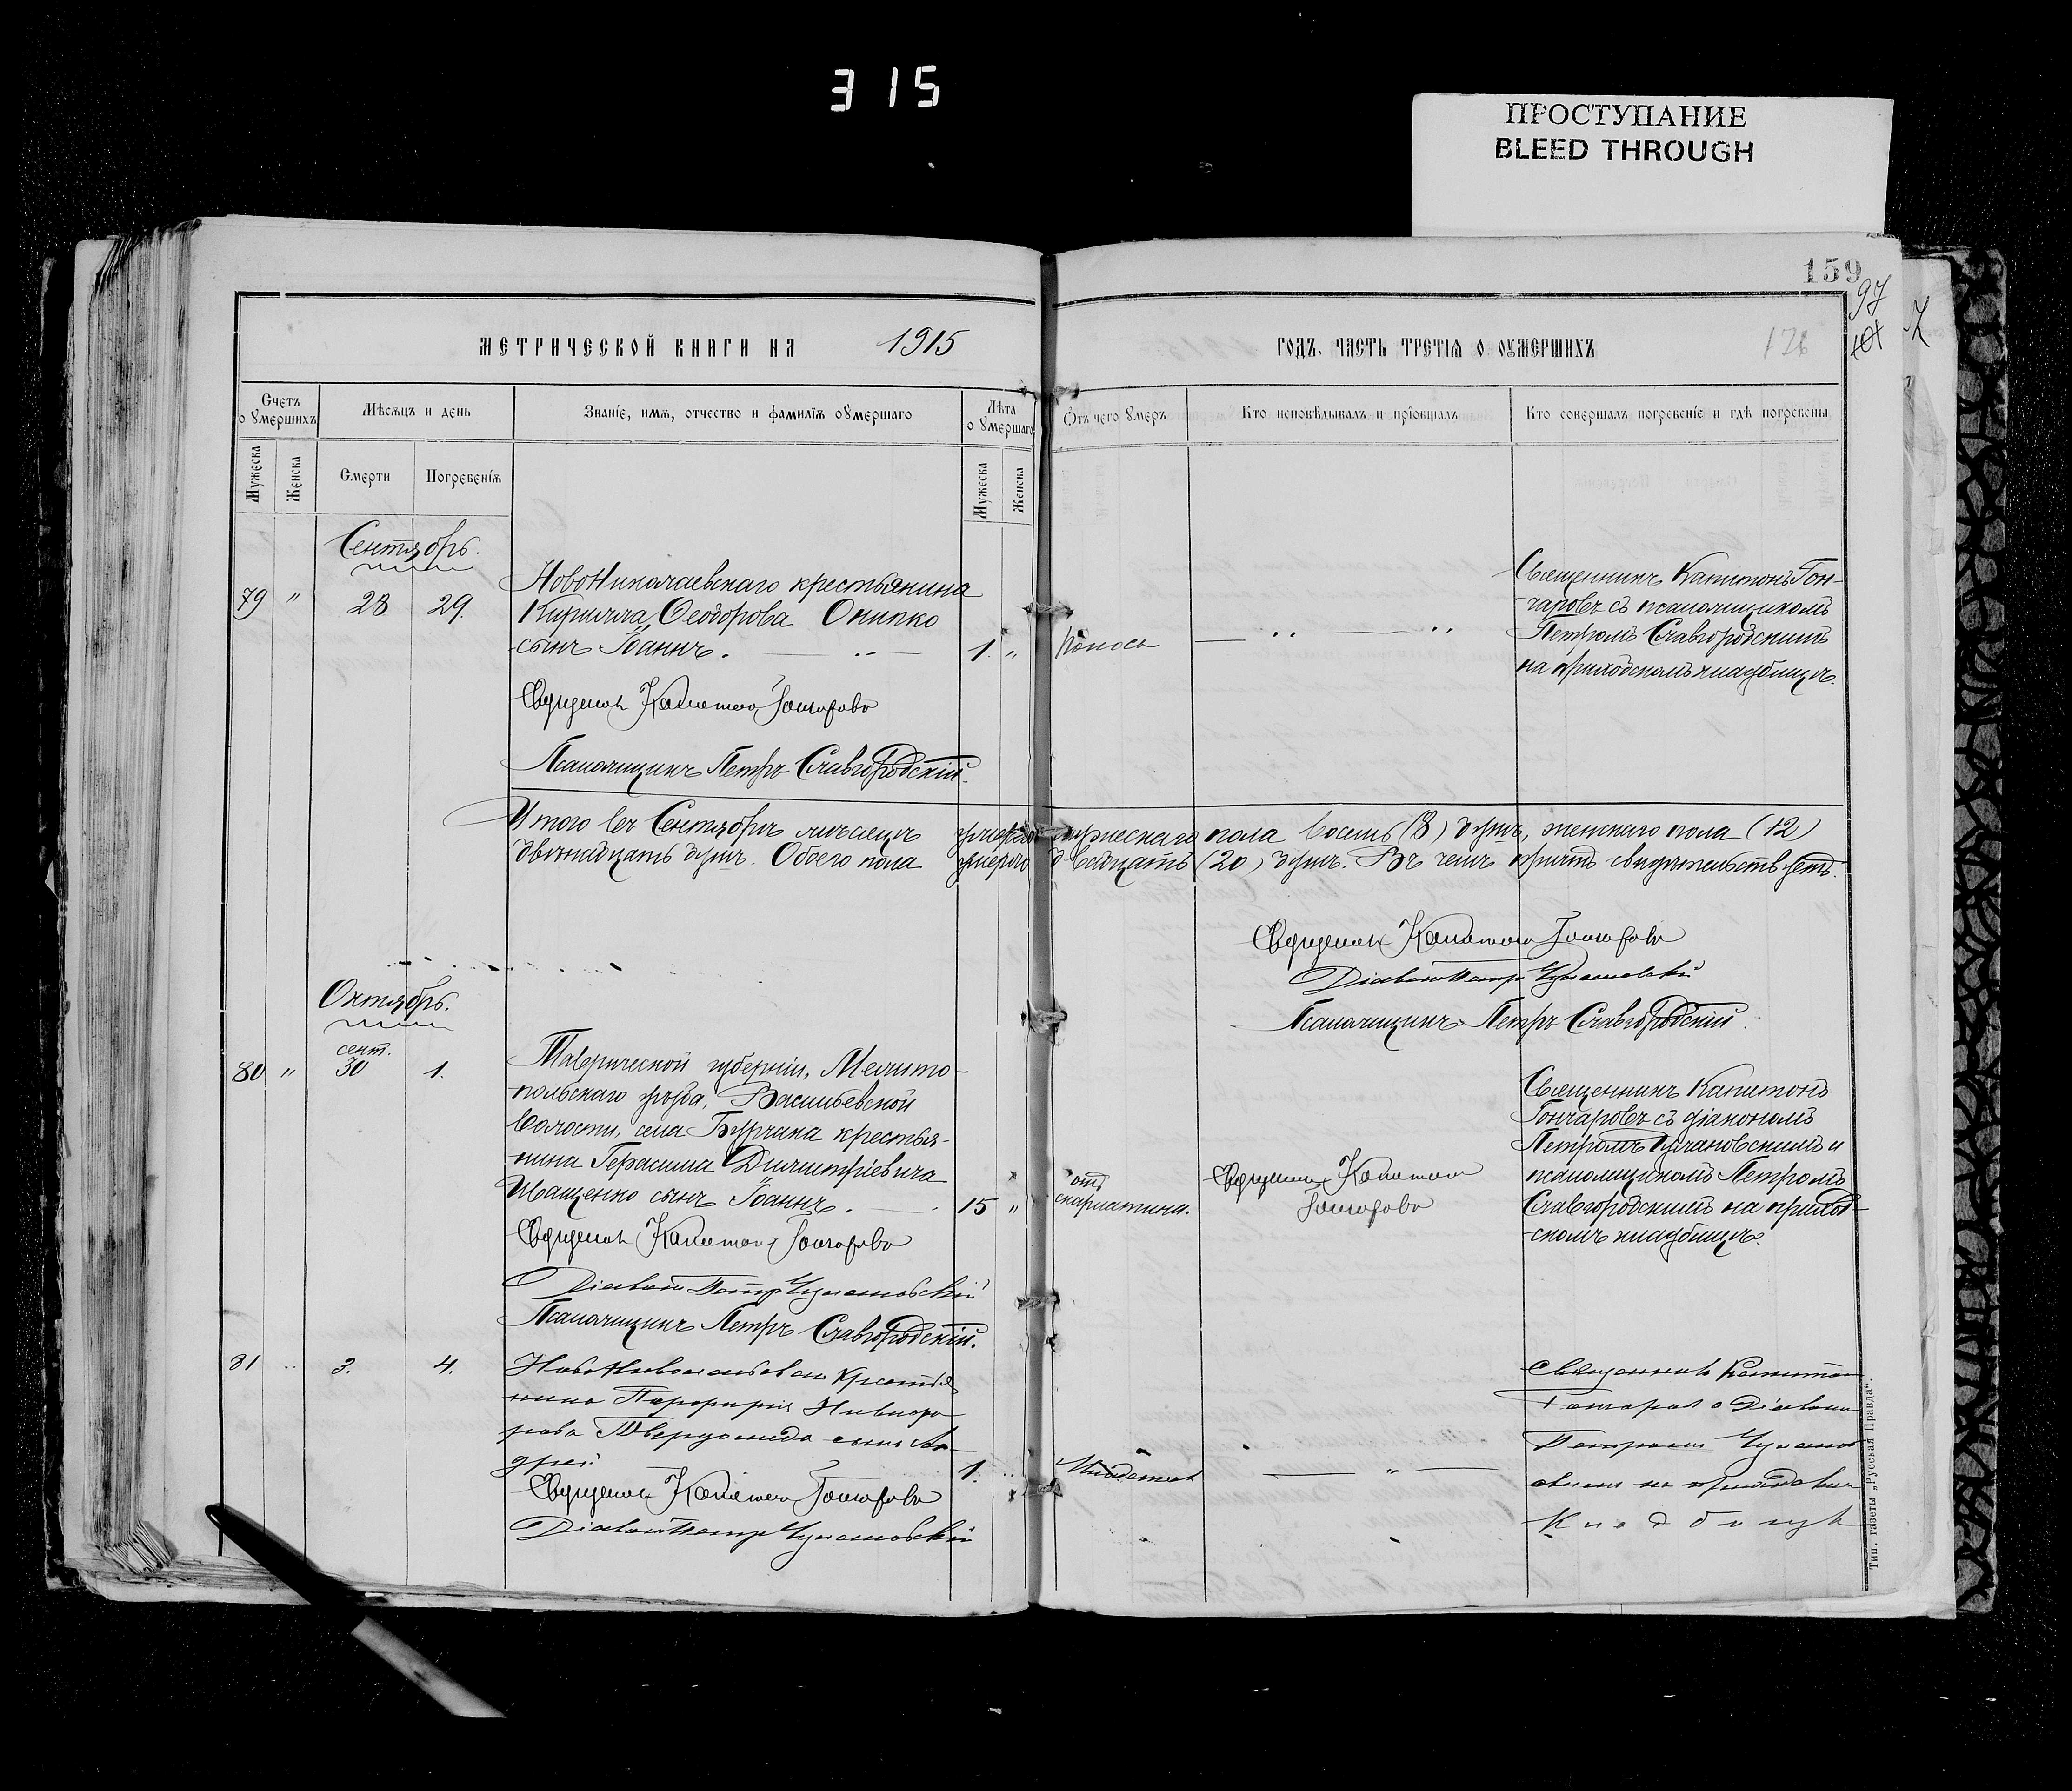 315
ПРОСТУПАНИЕ
BLEED THROUGH
159
97
МЕТРИЧЕСКОЙ КНИГИ НА 1915 ГОДЪ, ЧАСТЬ ТРЕТІѦ О ОУМЕРШИХЪ
126
Счетъ оумершихъ
Мѣсѧцъ и день
Званіе, имѧ, отчество и фамиліѧ оумершаго
Лѣта оумершаго
Отъ чего умеръ
Кто исповѣдывалъ и пріобщалъ
Кто совершалъ погребеніе и гдѣ погребены
Мужеска
Женска
Смерти
Погребеніѧ
Мужеска
Женска
Сентябрь.
79 " 28 29.
НовоНиколаевскаго крестьянина
Кирилла Ѳеодорова Онипко
сынъ Іоаннъ.
1. "
Поносъ
Священникъ Капитонъ Гон-
чаровъ съ псаломщикомъ
Петромъ Славгородскимъ
на приходскомъ кладбищѣ.
Священникъ Капитонъ Гончаровъ
Псаломщикъ Петръ Славгородскій.
Итого въ Сентябрѣ мѣсяцѣ умерло мужескаго пола восемь (8) душъ, женскаго пола (12)
двѣнадцать душъ. Обоего пола умерло двадцать (20) душъ. Въ чемъ причтъ свидѣтельствуетъ.
Священникъ Капитонъ Гончаровъ
Діаконъ Петръ
Псаломщикъ Петръ Славгородскій.
Октябрь.
80 " сент. 30 1.
Таврической губерніи, Мелито-
польскаго уѣзда, Васильевской
волости, села Бурчака крестья-
нина Герасима Димитріевича
Иващенко сынъ Іоаннъ.
15 "
отъ
скарлатина.
Священникъ Капитонъ
Гончаровъ
Священникъ Капитонъ
Гончаровъ съ діакономъ
Петромъ и
псаломщикомъ Петромъ
Славгородскимъ на приход-
скомъ кладбищѣ.
Священникъ Капитонъ Гончаровъ
Діаконъ Петръ
Псаломщикъ Петръ Славгородскій.
81 3. 4.
крестья
нина Порфирія Никифо
рова сынъ Ан
дрей
1.
Священникъ Капитонъ
Гончаровъ с Діакон
Петромъ
на приходском
Кладбищѣ
Священникъ Капитонъ Гончаровъ
Діаконъ Петръ
Тип. газеты „Русская Правда“.